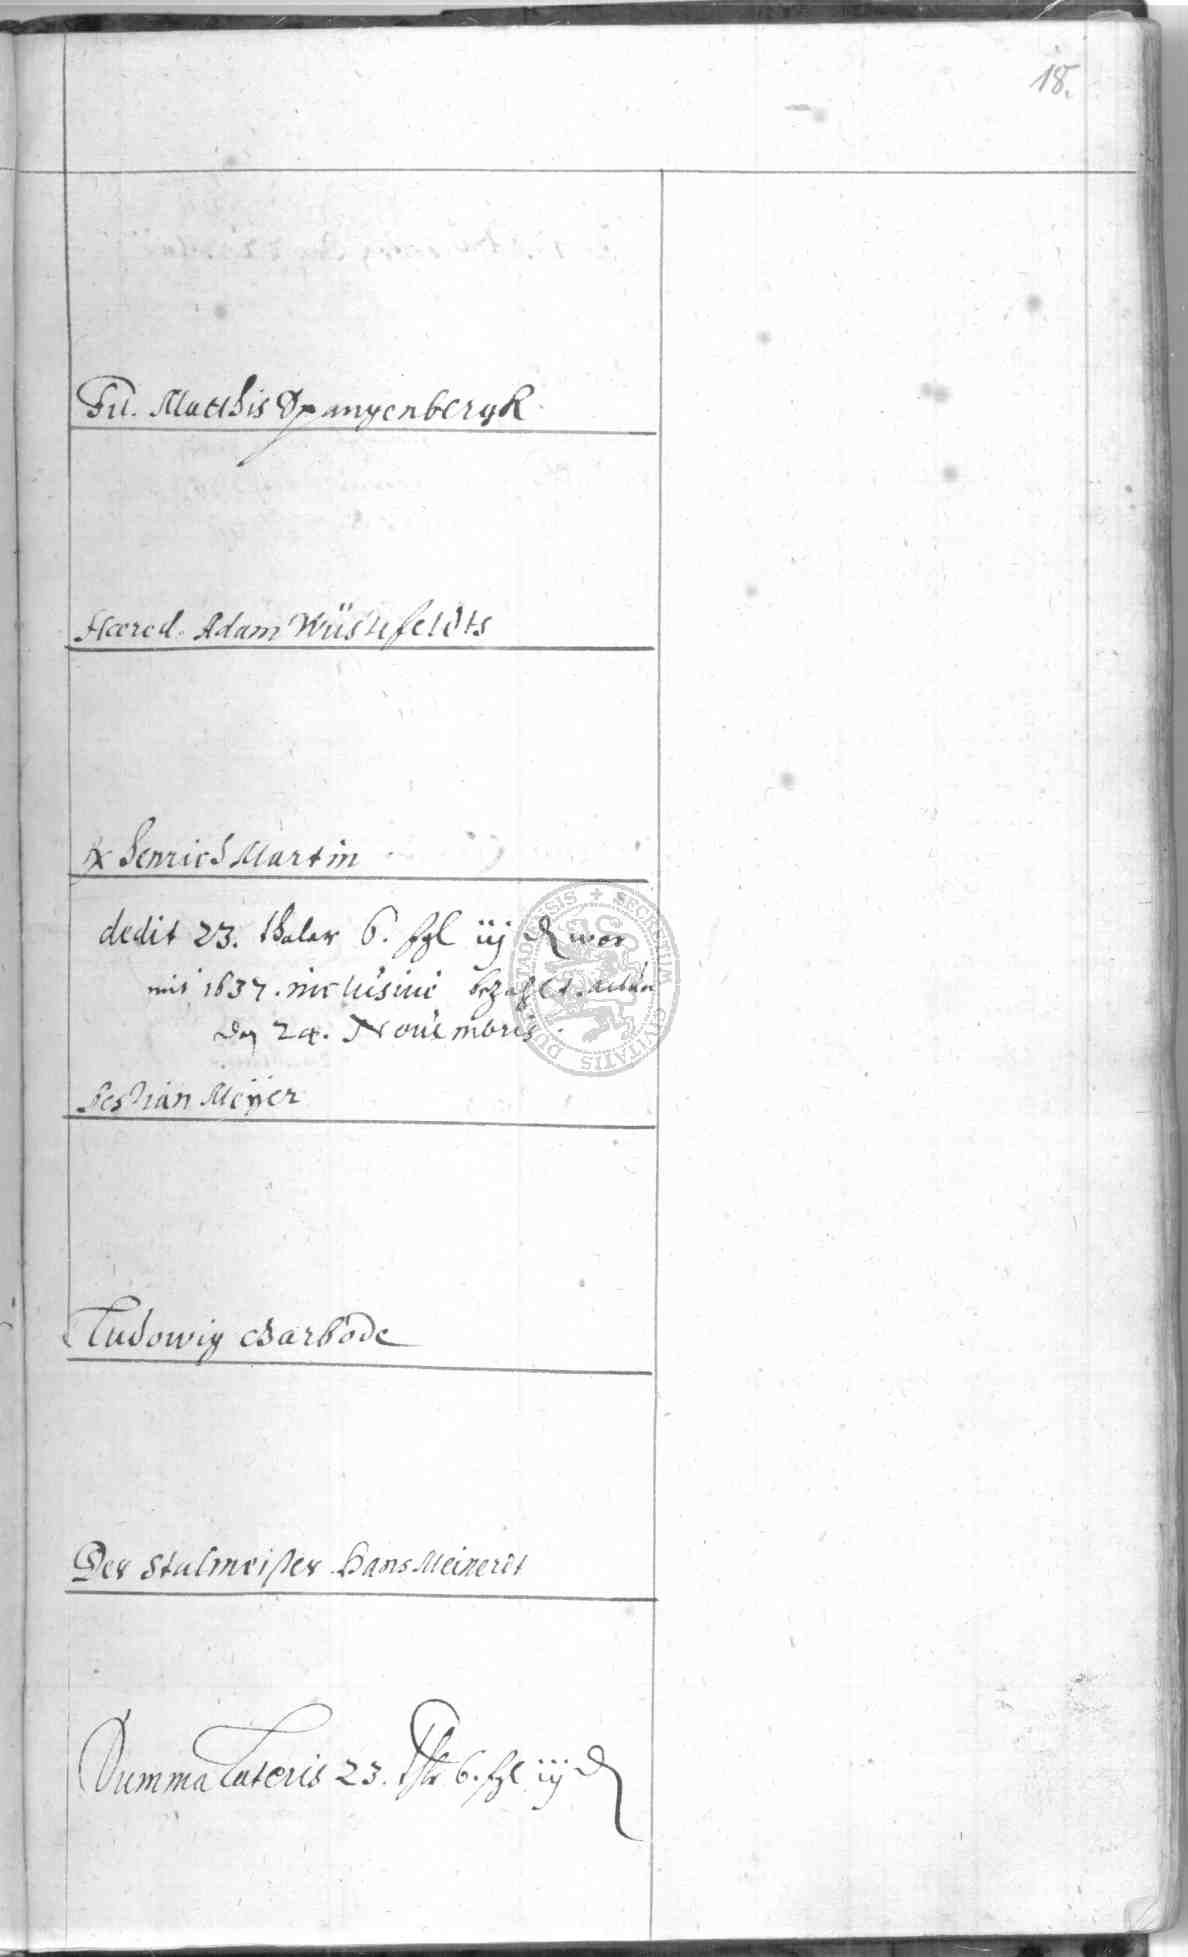 18.
Fil. Matthis Spangenbergk
Haered. Adam Wüstefeldts
Henrich Martin
dedit 23. thaler 6. ßgl iij ₰ wor
mit 1637. inclusiue bezahlt. Actum
den 24. Nouembris.
Bestian Meÿer
Ludowig Barbode
Der Stalmeister Hans Meinerdt
Summa Lateris 23. Thlr 6. ßgl iij ₰
SECRETUM CIVITATIS DUDERSTADIENSIS